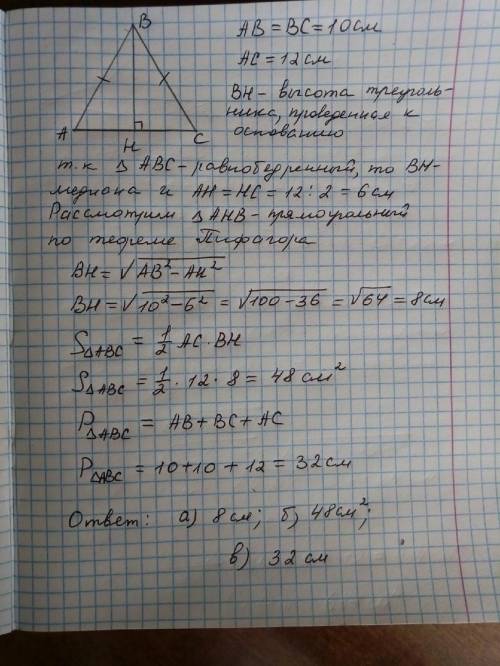 B
A
H
C
AB = BC = 10 см
AC = 12 см
BH - высота треуголь-
ника, проведенная к
основанию
т.к Δ ABC - равнобедренный, то BH-
медиана и AH = HC = 12 : 2 = 6 см
Рассмотрим Δ AHB - прямоугольный
по теореме Пифагора
BH = √AB² - AH²
BH = √10² - 6² = √100 - 36 = √64 = 8 см
S ΔABC = 1/2 AC · BH
S ΔABC = 1/2 · 12 · 8 = 48 см²
P ΔABC = AB + BC + AC
P ΔABC = 10 + 10 + 12 = 32 см
Ответ: а) 8 см; б) 48 см²;
в) 32 см